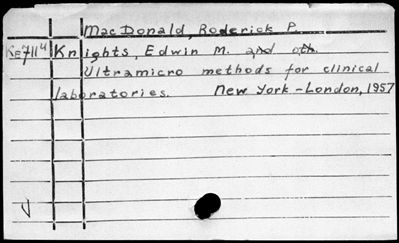 MacDonald, Roderick P.
KE7114 Knights, Edwin M. and oth.
Ultramicro methods for clinical
laboratories. New York-London, 1957